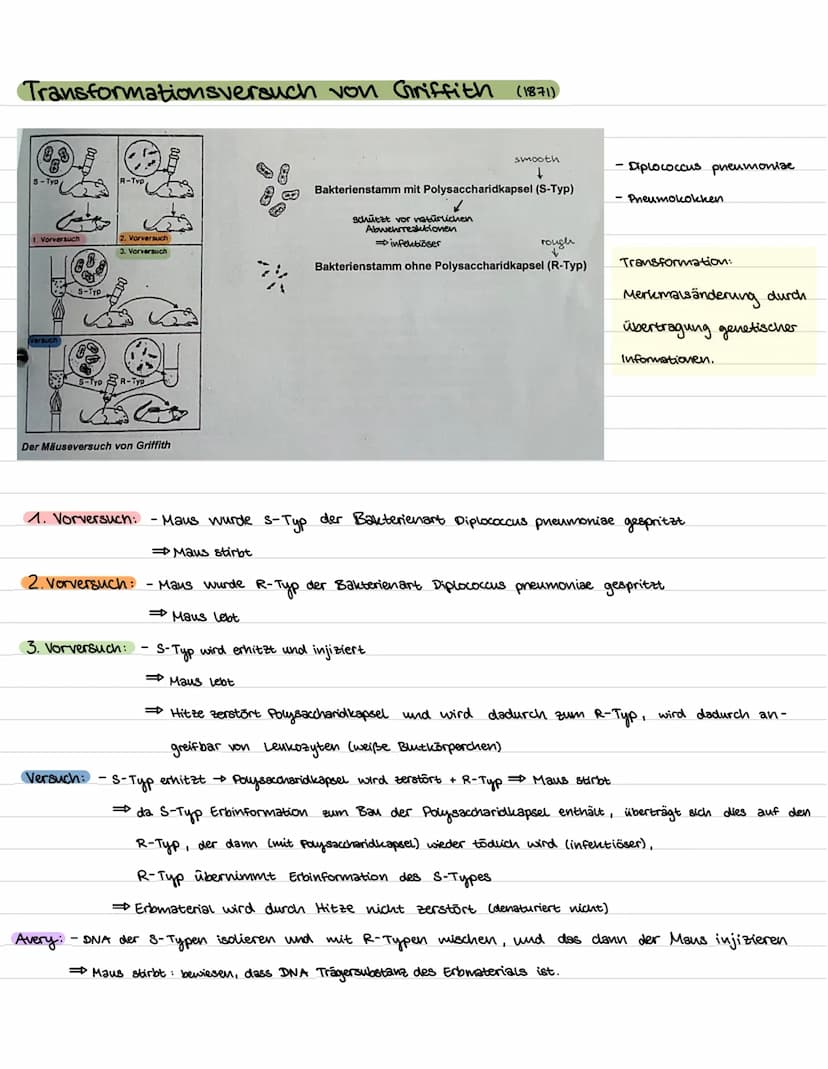 Transformationsversuch von Griffith (1871)
S-Typ
R-Typ
1. Vorversuch
2. Vorversuch
3. Vorversuch
S-Typ
Versuch
S-Typ
R-Typ
Der Mäuseversuch von Griffith
smooth
Bakterienstamm mit Polysaccharidkapsel (S-Typ)
schützt vor natürlichen
Abwehrreaktionen
⇒ infektiöser
rough
Bakterienstamm ohne Polysaccharidkapsel (R-Typ)
- Diplococcus pneumoniae
- Pneumokokken
Transformation:
Merkmalsänderung durch
übertragung genetischer
Informationen.
1. Vorversuch: - Maus wurde S-Typ der Bakterienart Diplococcus pneumoniae gespritzt
⇒ Maus stirbt
2. Vorversuch: - Maus wurde R-Typ der Bakterienart Diplococcus pneumoniae gespritzt
⇒ Maus lebt
3. Vorversuch: - S-Typ wird erhitzt und injiziert
⇒ Maus lebt
⇒ Hitze zerstört Polysaccharidkapsel und wird dadurch zum R-Typ, wird dadurch an-
greifbar von Leukozyten (weiße Blutkörperchen)
Versuch: - S-Typ erhitzt → Polysaccharidkapsel wird zerstört + R-Typ ⇒ Maus stirbt
⇒ da S-Typ Erbinformation zum Bau der Polysaccharidkapsel enthält, überträgt sich dies auf den
R-Typ, der dann (mit Polysaccharidkapsel) wieder tödlich wird (infektiöser),
R-Typ übernimmt Erbinformation des S-Types
⇒ Erbmaterial wird durch Hitze nicht zerstört (denaturiert nicht)
Avery: - DNA der S-Typen isolieren und mit R-Typen mischen, und das dann der Maus injizieren
⇒ Maus stirbt : bewiesen, dass DNA Trägersubstanz des Erbmaterials ist.